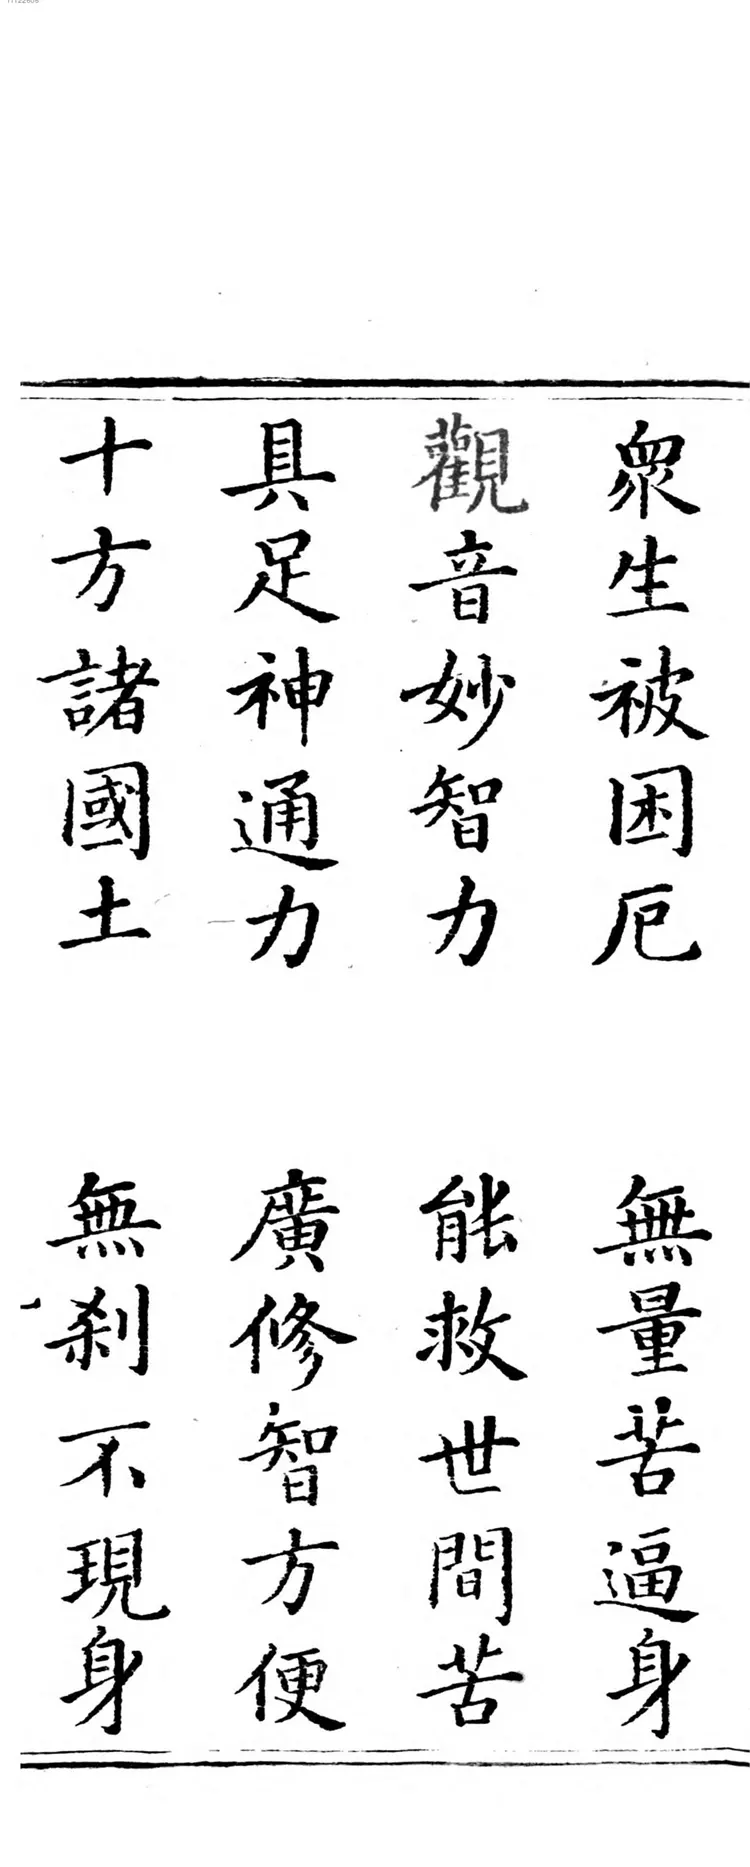 衆生被困厄　無量苦逼身
觀音妙智力　能救世間苦
具足神通力　廣修智方便
十方諸國土　無刹不現身